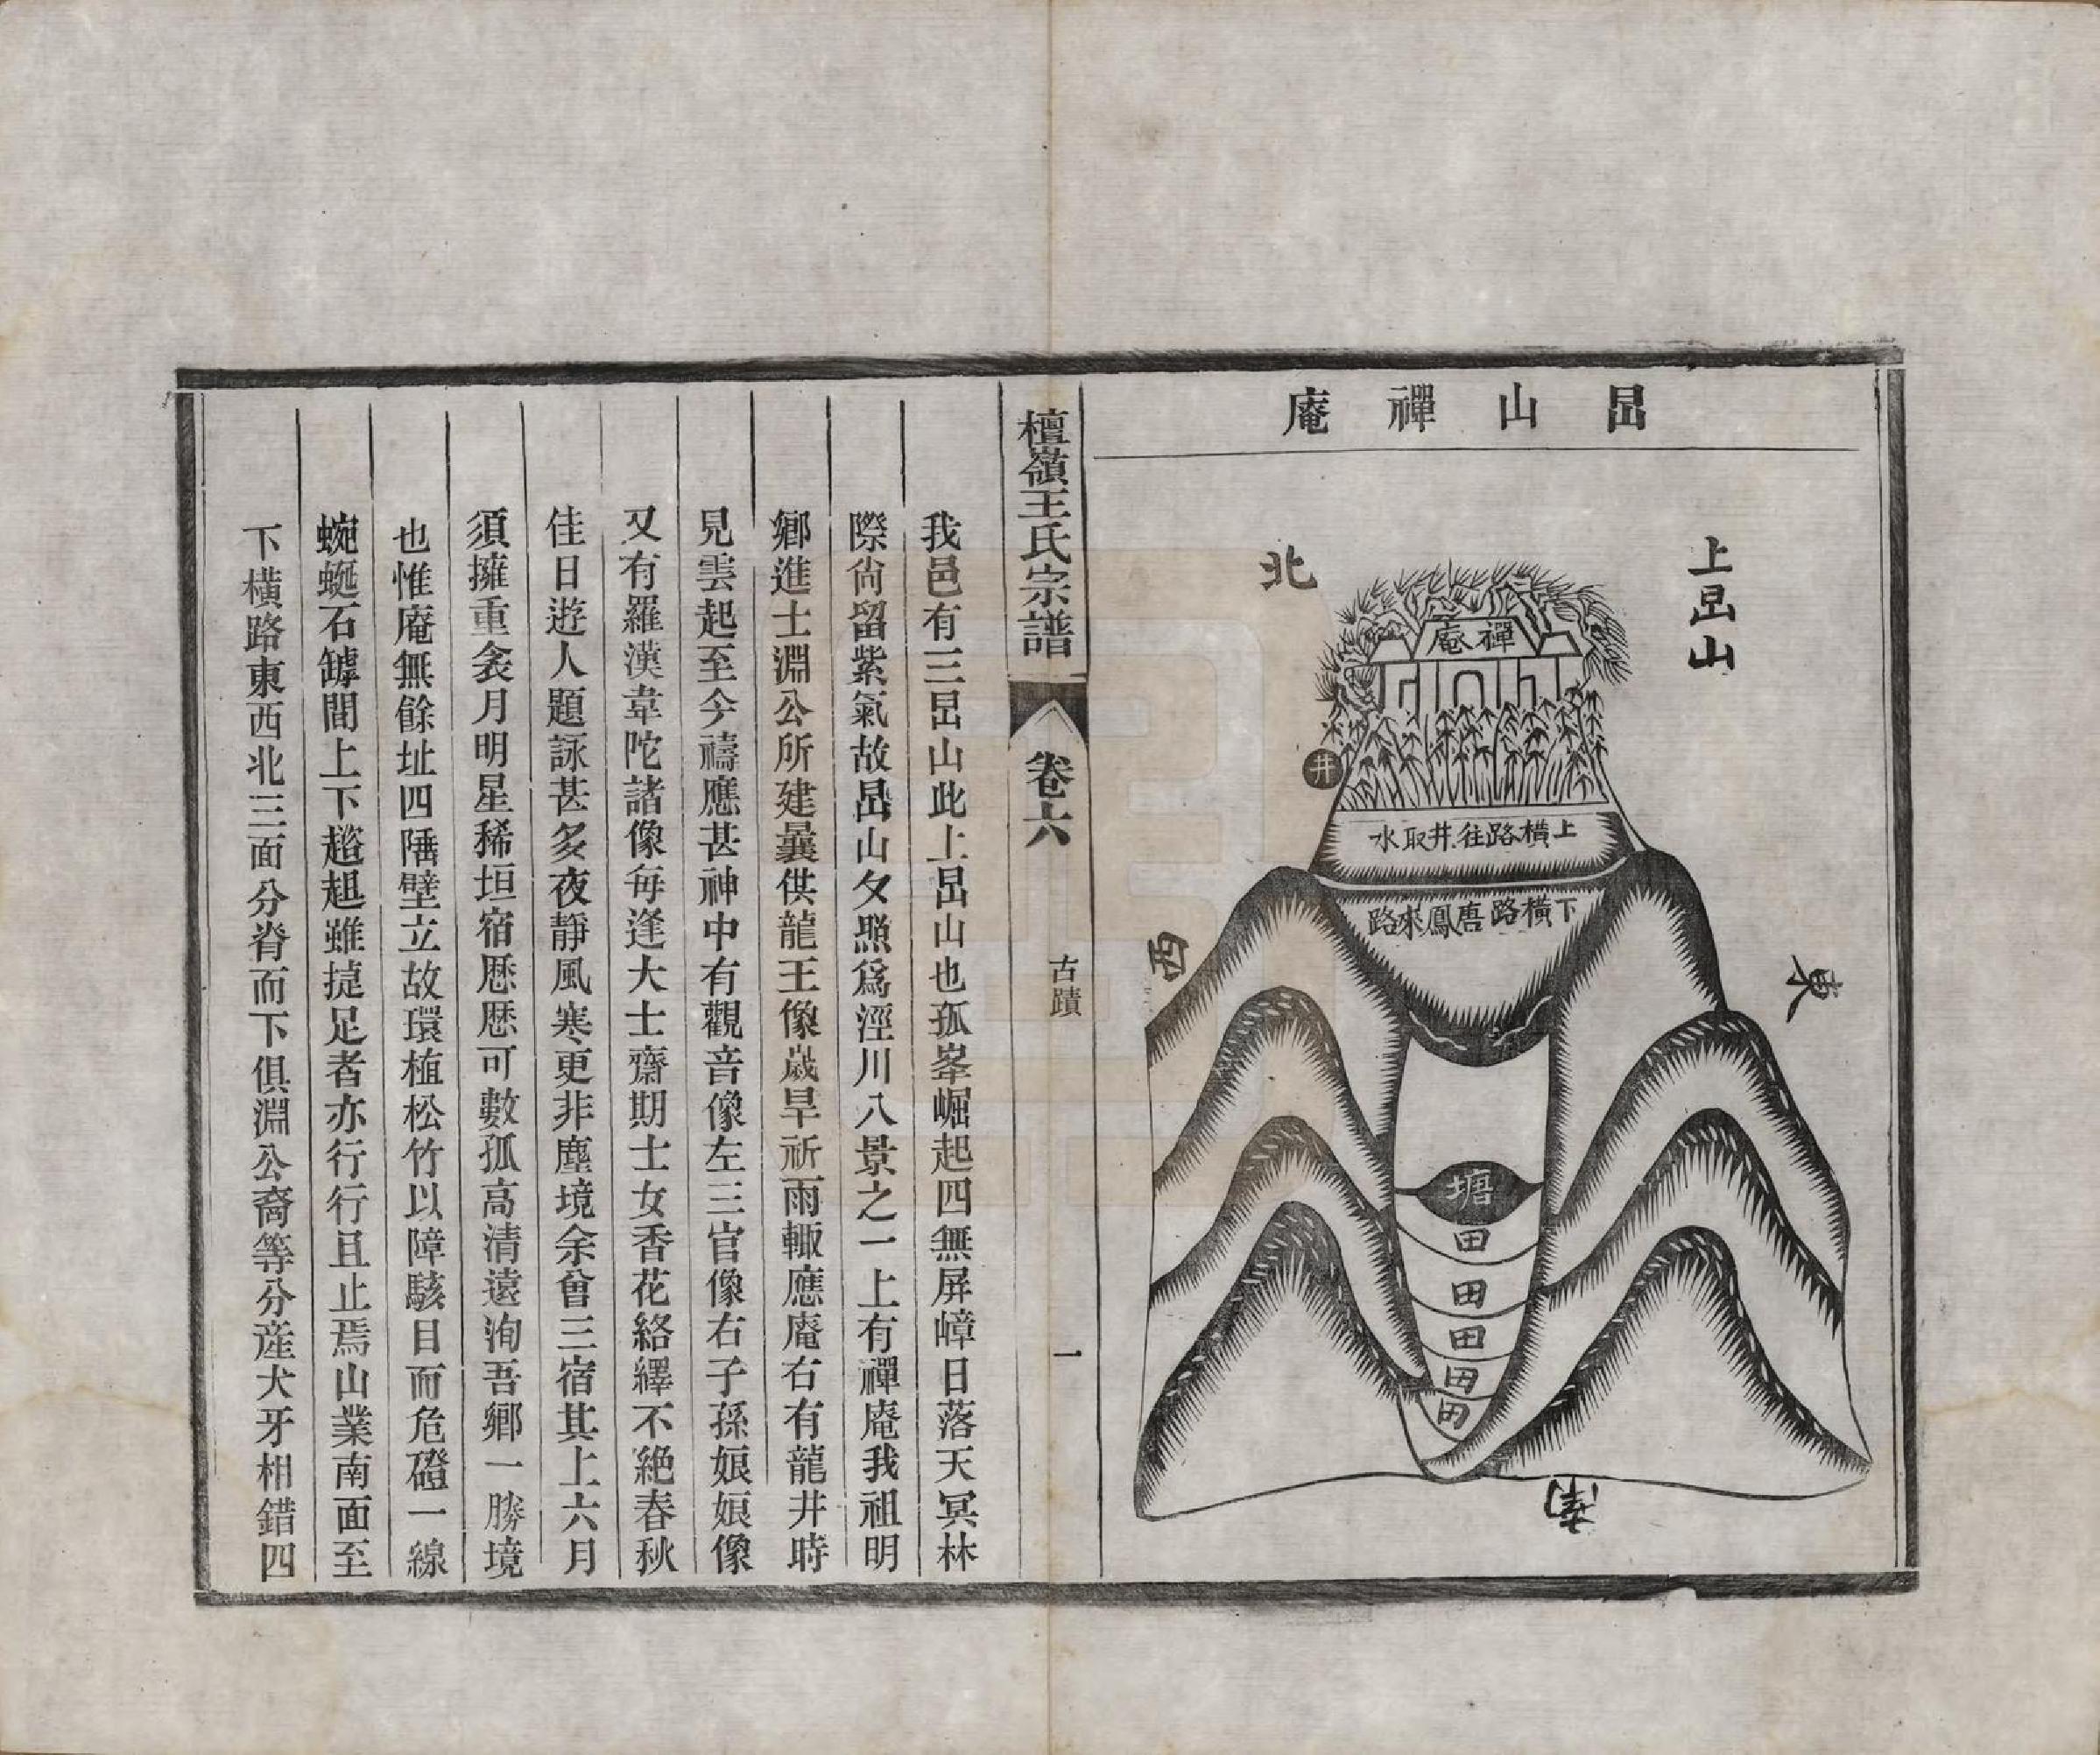 嵒山禪庵
上嵒山
北
禪庵
井
上橫路往井取水
下橫路唐鳳來路
西
東
塘
田
田
田
田
田
南
檀嶺王氏宗譜
卷六
古蹟
一
我邑有三嵒山此上嵒山也孤峯崛起四無屏嶂日落天冥林
際尙留紫氣故嵒山夕照爲涇川八景之一上有禪庵我祖明
鄉進士淵公所建曩供龍王像歲旱祈雨輙應庵右有龍井時
見雲起至今禱應甚神中有觀音像左三官像右子孫娘娘像
又有羅漢韋陀諸像每逢大士齋期士女香花絡繹不絶春秋
佳日遊人題詠甚多夜靜風寒更非塵境余曾三宿其上六月
須擁重衾月明星稀垣宿歷歷可數孤高清遠洵吾鄉一勝境
也惟庵無餘址四陲壁立故環植松竹以障駭目而危磴一線
蜿蜒石罅間上下趦趄雖捷足者亦行行且止焉山業南面至
下橫路東西北三面分脊而下俱淵公裔等分産犬牙相錯四